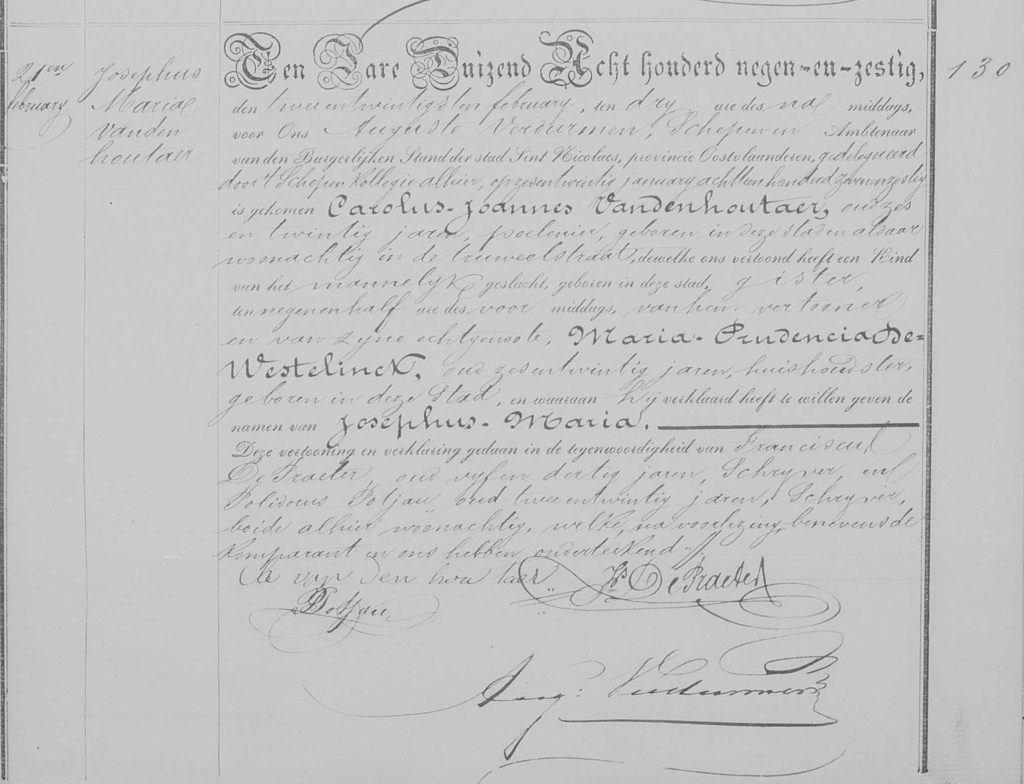 21en
february
Josephus
Maria
Vanden
houtaer
Ten Jare Tuizend Acht honderd negen-en-zestig,
130
den tweeentwintigsten february, ten dry ure des na middags,
voor Ons Auguste Verdurmen, Schepen en Ambtenaar
van den Burgerlijken Stand der stad Sint Nicolaes, provincie Oostvlaanderen, gedelegueerd
door 't Schepen Kollegie alhier, op zesentwintig january achttien honderd zevenenzestig
is gekomen Carolus-Joannes Vandenhoutaer, oud zes
en twintig jaren, poelenier, geboren in deze stad en aldaar
woonachtig in de truweelstraat, dewelke ons vertoond heeft een Kind
van het mannelyk geslacht, geboren in deze stad, gister,
ten negen en half ure des voor middags, van hem vertooner
en van zyne echtgenoote, Maria-Prudencia De-
Westelinck, oud zesentwintig jaren, huishoudster,
geboren in deze Stad, en waaraan hij verklaard heeft te willen geven de
namen van Josephus-Maria.
Deze vertooning en verklaring gedaan in de tegenwoordigheid van Franciscus
De Praeter, oud vyfen dertig jaren, Schryver, en
Polidorus Potjau, oud tweeentwintig jaren, Schryver,
beide alhier woonachtig, welke, na voorlezing, benevens de
komparant en ons hebben onderteekend.
C. van Den hou taer Fs De Praeter
Potjau
Aug: Verdurmen